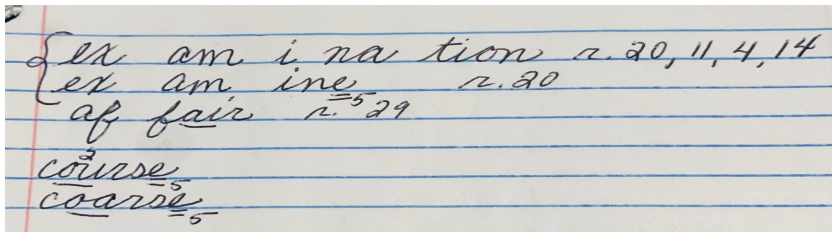 ex am i na tion r. 20, 11, 4, 14
ex am ine5 r. 20
af fair r. 29
cou2rse5
coarse5